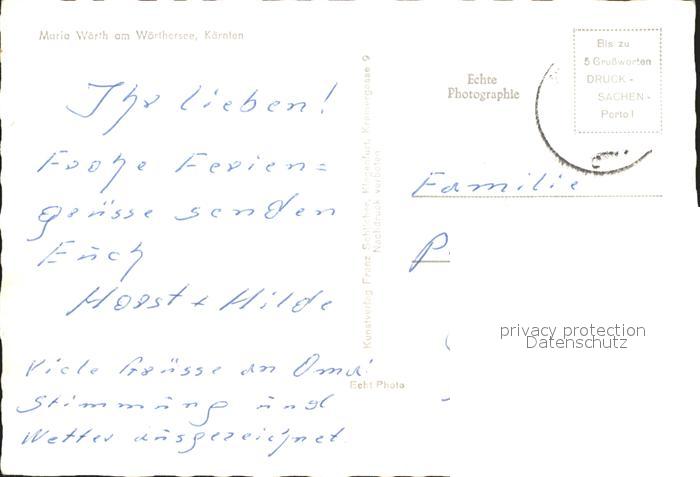 Maria Wörth am Wörthersee, Kärnten
Ihr lieben!
Frohe Ferien=
grüsse senden
Euch
Horst + Hilde
Viele Grüsse an Oma!
Stimmung und
Wetter ausgezeichnet.
Kunstverlag Franz Schilcher, Klagenfurt, Kramergasse 9
Nachdruck verboten
Echt Photo
Echte
Photographie
Bis zu
5 Grußworten
DRUCK-
SACHEN-
Porto!
Familie
P.
privacy protection
Datenschutz